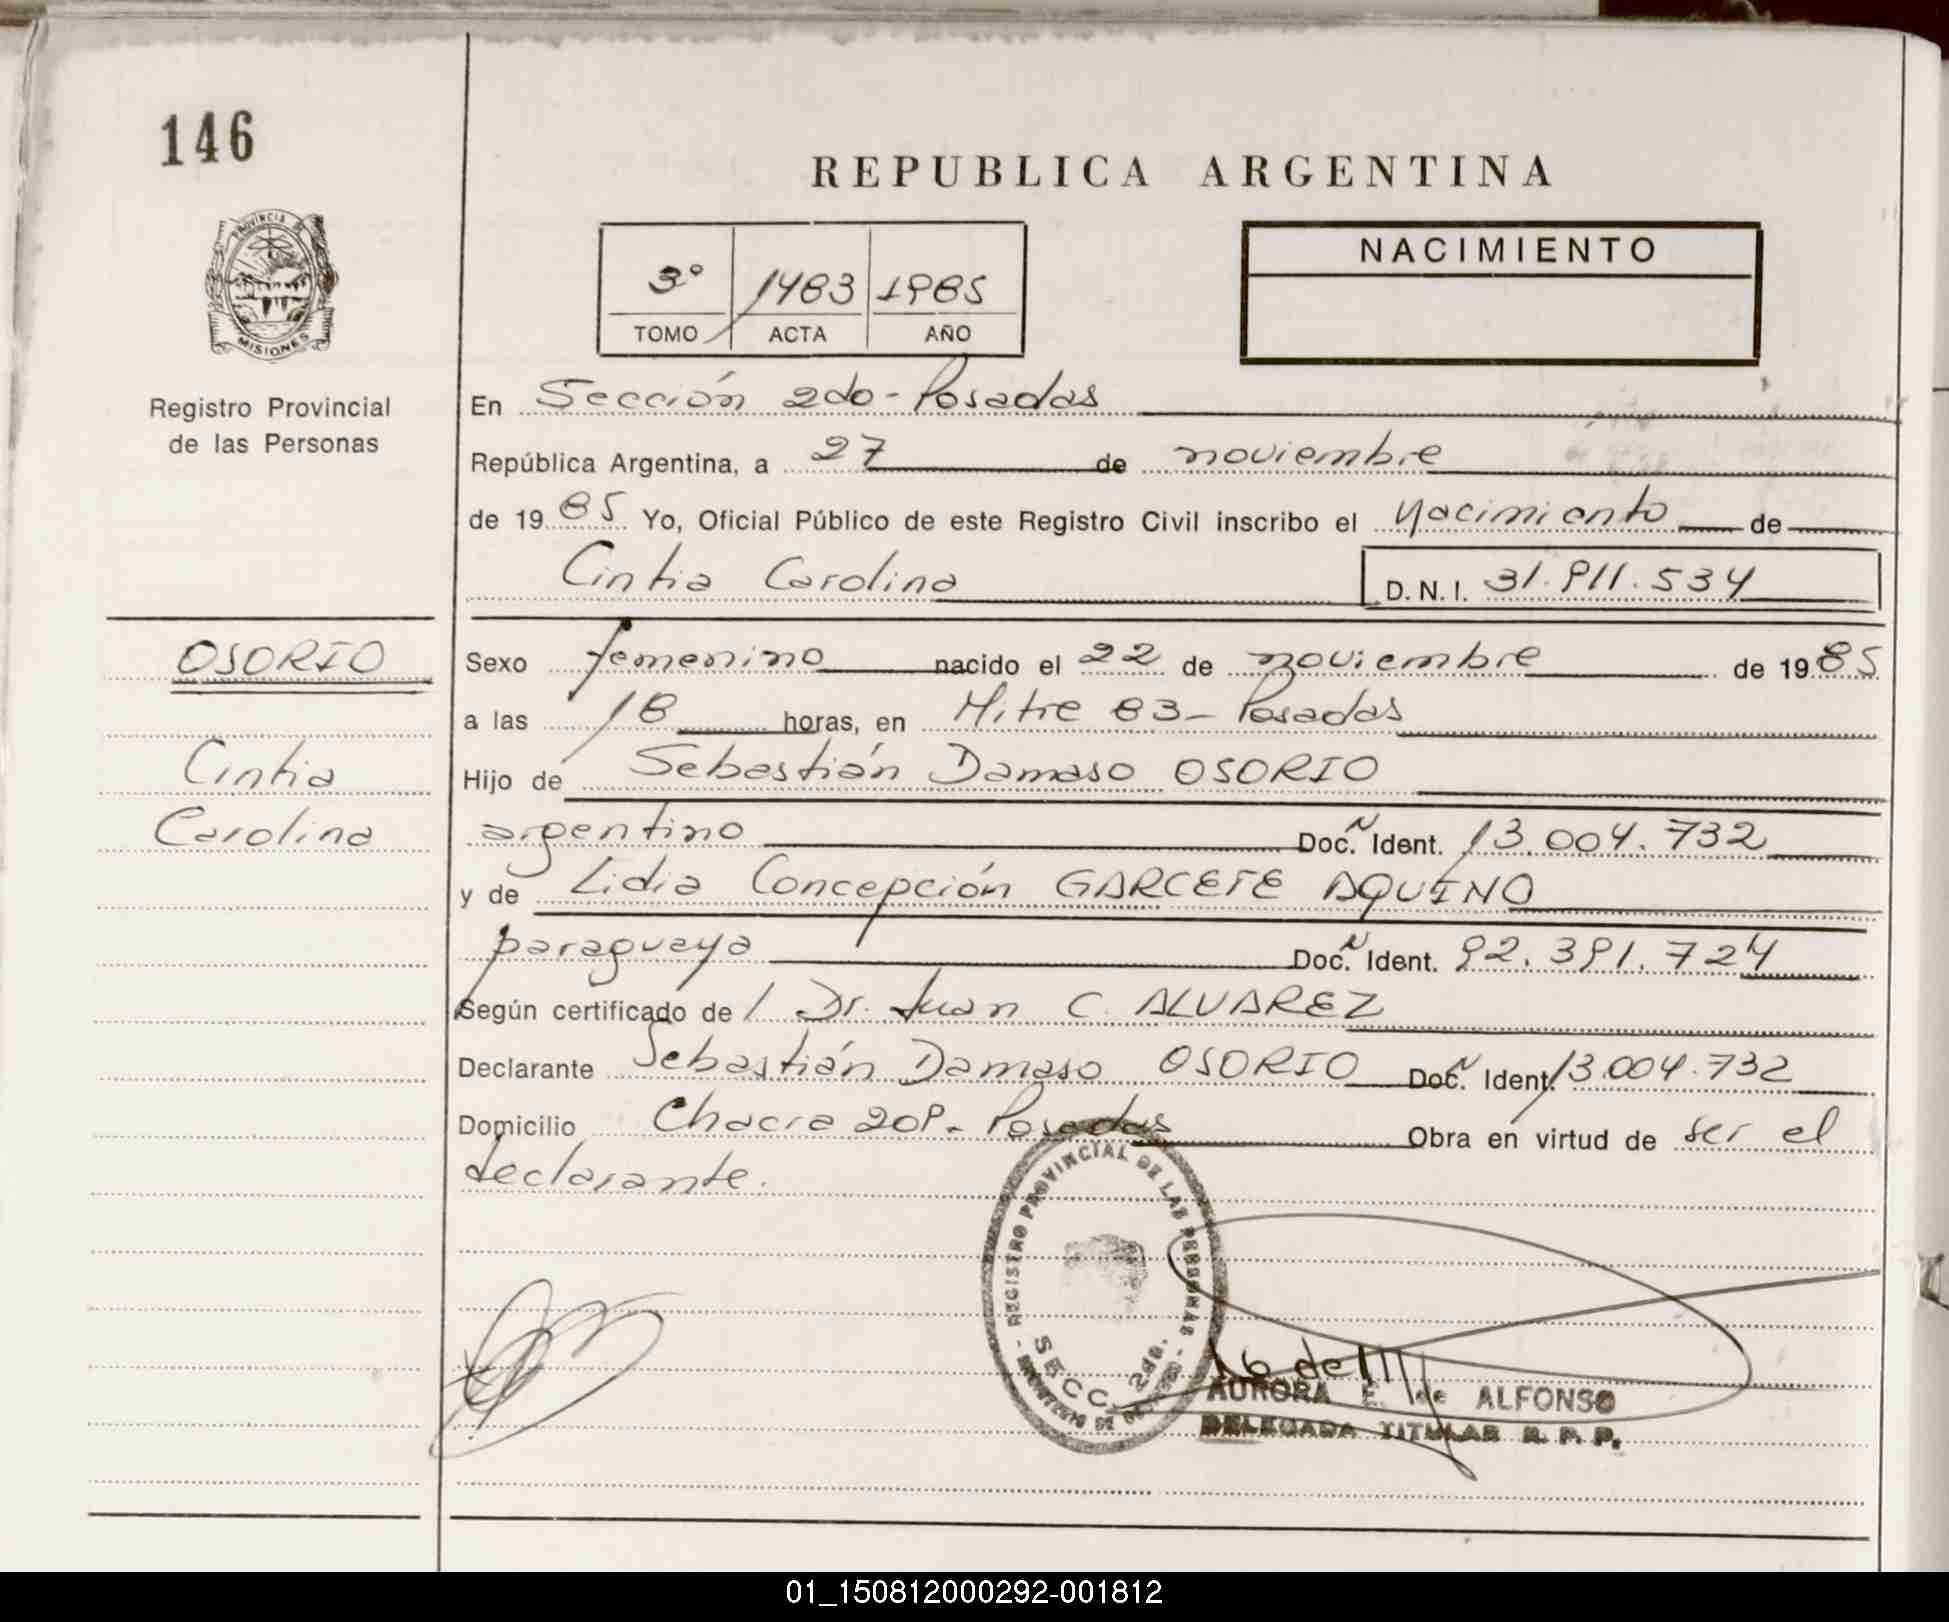 146
REPUBLICA ARGENTINA
PROVINCIA DE
MISIONES
3º 1483 1985
TOMO ACTA AÑO
NACIMIENTO
Registro Provincial
de las Personas
En Sección 2do - Posadas
República Argentina, a 27 de noviembre
de 1985 Yo, Oficial Público de este Registro Civil inscribo el Nacimiento de
Cintia Carolina D.N.I. 31.911.534
OSORIO
Cintia
Carolina
Sexo femenino nacido el 22 de noviembre de 1985
a las 18 horas, en Mitre 83 - Posadas
Hijo de Sebastián Damaso OSORIO
argentino Doc. N Ident. 13.004.732
y de Lidia Concepción GARCETE AQUINO
paraguaya Doc. N Ident. 92.391.724
Según certificado de Dr. Juan C. ALVAREZ
Declarante Sebastián Damaso OSORIO Doc. N Ident. 13.004.732
Domicilio Chacra 209 - Posadas Obra en virtud de ser el
declarante.
REGISTRO PROVINCIAL DE LAS PERSONAS
SECC. 2da.
AURORA E. de ALFONSO
DELEGADA TITULAR R. P. P.
01_150812000292-001812